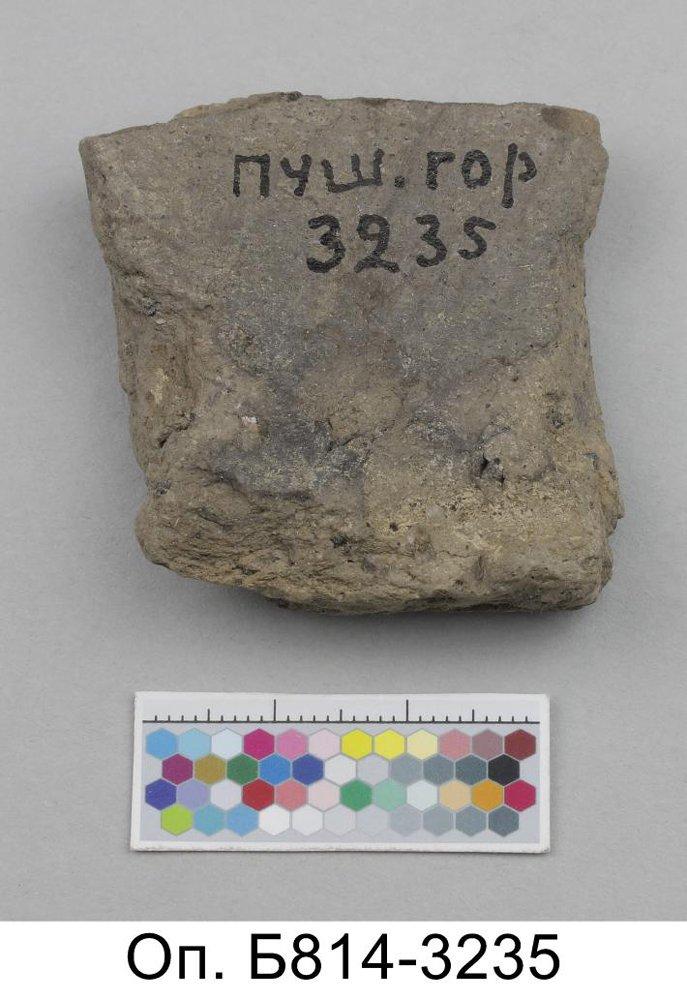 пуш. гор
3235
Оп. Б814-3235